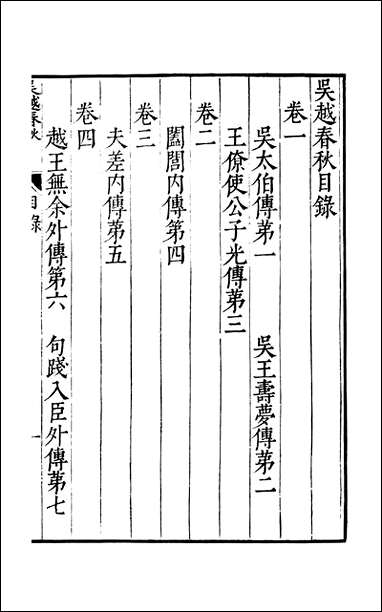 吳越春秋目錄
卷一
吳太伯傳第一　吳王壽夢傳第二
王僚使公子光傳第三
卷二
闔閭內傳第四
卷三
夫差內傳第五
卷四
越王無余外傳第六　句踐入臣外傳第七
吳越春秋　目錄　一